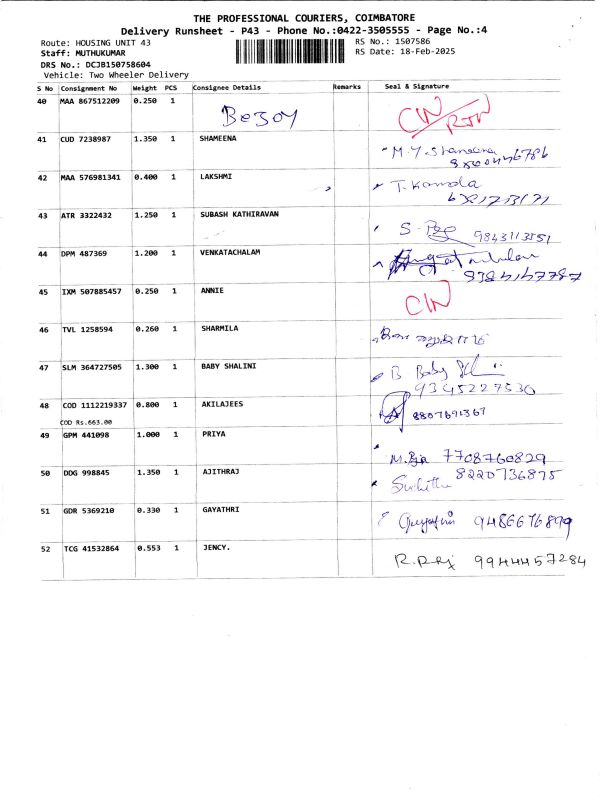 THE PROFESSIONAL COURIERS, COIMBATORE
Delivery Runsheet - P43 - Phone No.:0422-3505555 - Page No.:4
Route: HOUSING UNIT 43
RS No.: 1507586
Staff: MUTHUKUMAR
RS Date: 18-Feb-2025
DRS No.: DCJB150758604
Vehicle: Two Wheeler Delivery
S No Consignment No Weight PCS Consignee Details Remarks Seal & Signature
40 MAA 867512209 0.250 1 BeJoy CIN RTN
41 CUD 7238987 1.350 1 SHAMEENA M.Y. Shameena
42 MAA 576981341 0.400 1 LAKSHMI T. Kamala
43 ATR 3322432 1.250 1 SUBASH KATHIRAVAN 9843113551
44 DPM 487369 1.200 1 VENKATACHALAM
45 IXM 507885457 0.250 1 ANNIE CIN
46 TVL 1258594 0.260 1 SHARMILA
47 SLM 364727505 1.300 1 BABY SHALINI B Baby
9345227530
48 COD 1112219337 0.800 1 AKILAJEES 8807691367
COD Rs.663.00
49 GPM 441098 1.000 1 PRIYA 7708760829
50 DDG 998845 1.350 1 AJITHRAJ 8220736875
51 GDR 5369210 0.330 1 GAYATHRI Gayathri 9486676899
52 TCG 41532864 0.553 1 JENCY. 9944457284